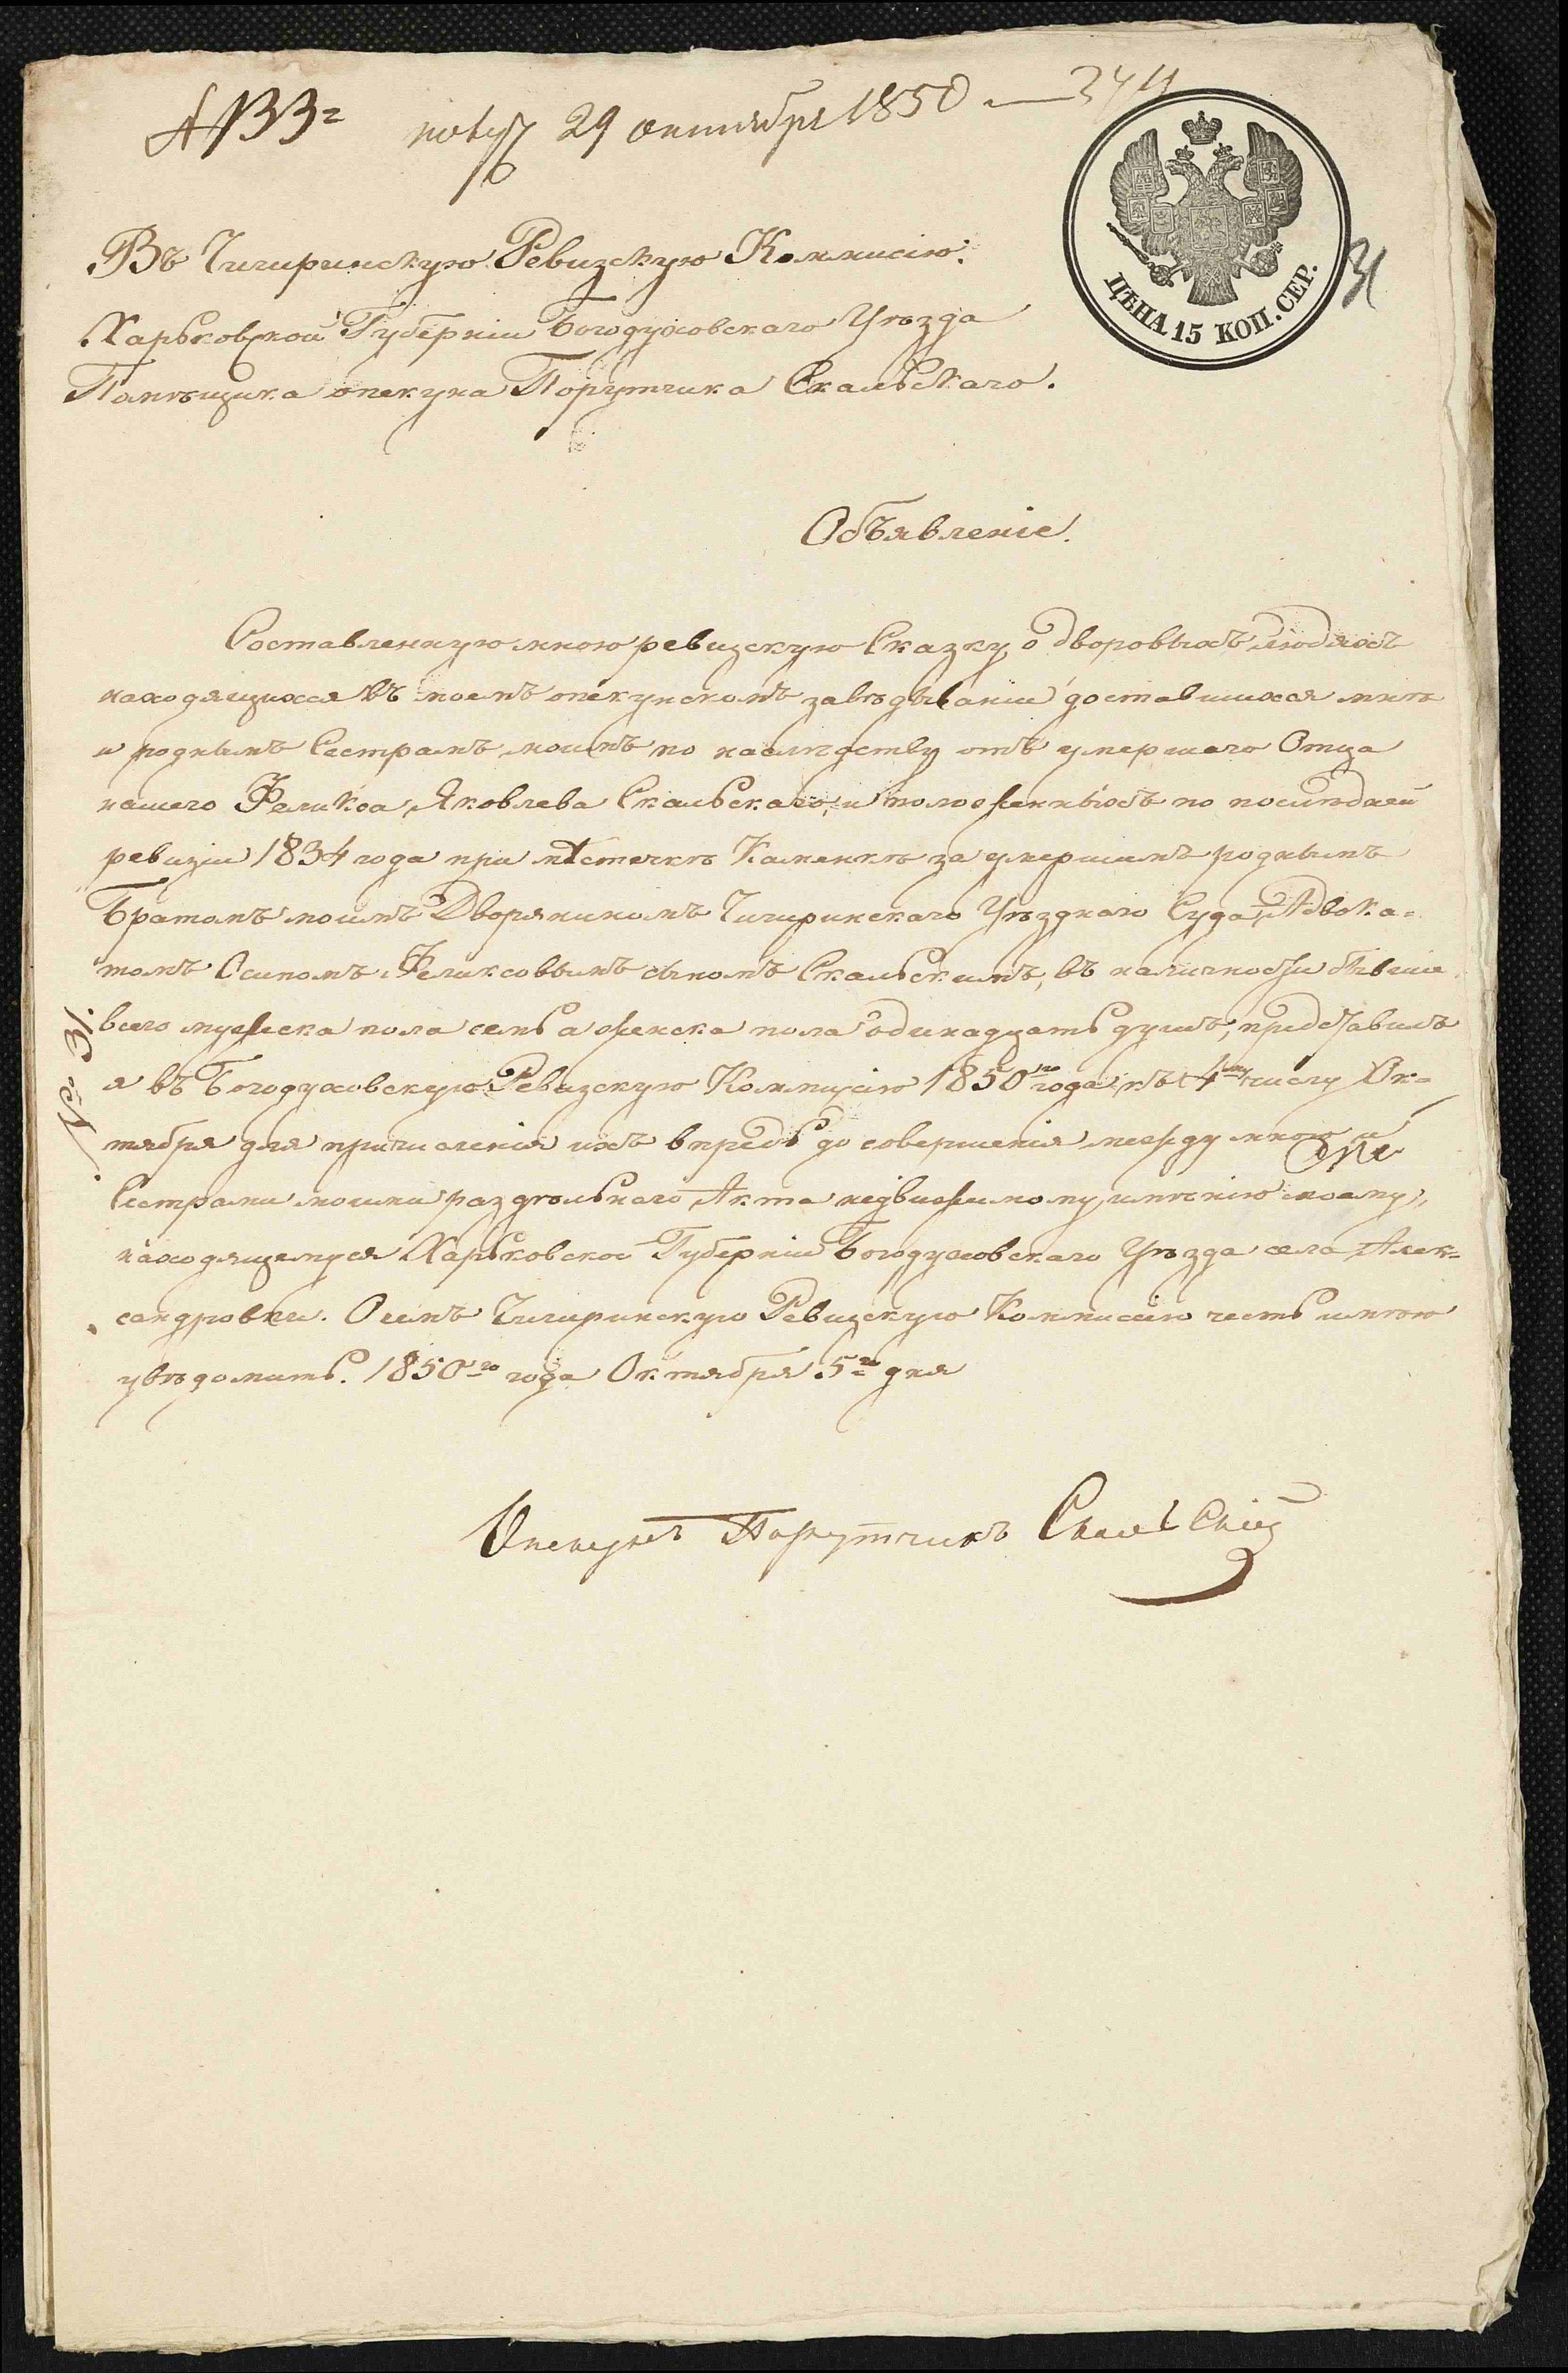 133 получ 29 октября 1850
ЦѢНА 15 КОП. СЕР.
31
Въ Чигиринскую Ревизскую Коммисію.
Харьковской Губерніи Богодуховскаго Уѣзда
Помѣщика опекуна Порутчика Скальскаго.
Объявленіе.
Составленную мною ревизскую Сказку о дворовыхъ людяхъ
находящихся въ моемъ опекунскомъ завѣдываніи доставшихся мнѣ
и роднымъ Сестрамъ моимъ по наслѣдству отъ умершаго Отца
нашего Феликса Яковлева Скальскаго, и положенныхъ по послѣдней
ревизіи 1834 года при мѣстечкѣ Каменкѣ за умершимъ роднымъ
Братомъ моимъ Дворяниномъ Чигиринскаго Уѣзднаго Суда Адвока=
томъ Осипомъ Феликсовымъ сыномъ Скальскимъ, въ наличности
всего мужеска пола семь а женска пола одинадцать душъ, представилъ
я въ Богодуховскую Ревизскую Коммисію 1850го года къ 4му числу Ок=
тября для причисленія ихъ впредь до совершенія между мною и
Сестрами моими раздѣльнаго Акта недвижимому имѣнію моему,
находящемуся Харьковской Губерніи Богодуховскаго Уѣзда села Алек=
сандровки. О семъ Чигиринскую Ревизскую Коммисію честь имѣю
увѣдомить. 1850го года Октября 5го дня
Опекунъ Порутчикъ Скальскій
№ 31.